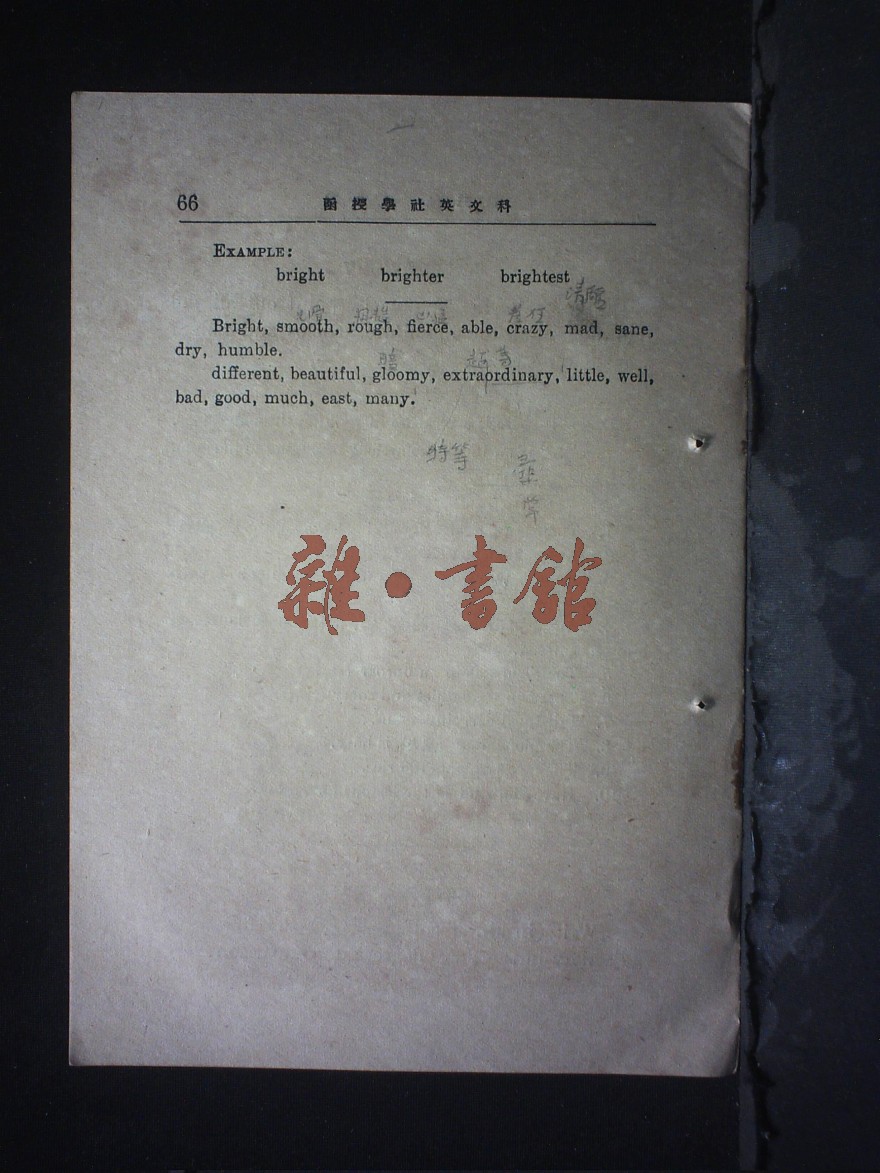 66 函授學社英文科
EXAMPLE:
bright brighter brightest
清醒
粗糙
Bright, smooth, rough, fierce, able, crazy, mad, sane,
dry, humble.
different, beautiful, gloomy, extraordinary, little, well,
bad, good, much, east, many.
特等
雜·書館